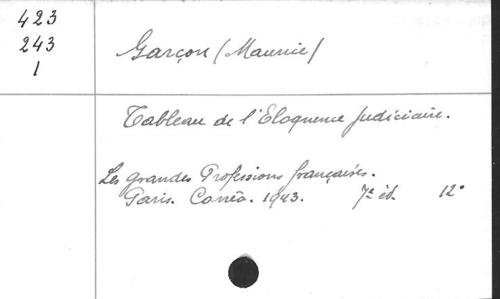 423
243
1
Garçon (Maurice)
Tableau de l'Eloquence judiciaire.
Les grandes Professions françaises.
Paris. Corrêa. 1943. 7e éd. 12°